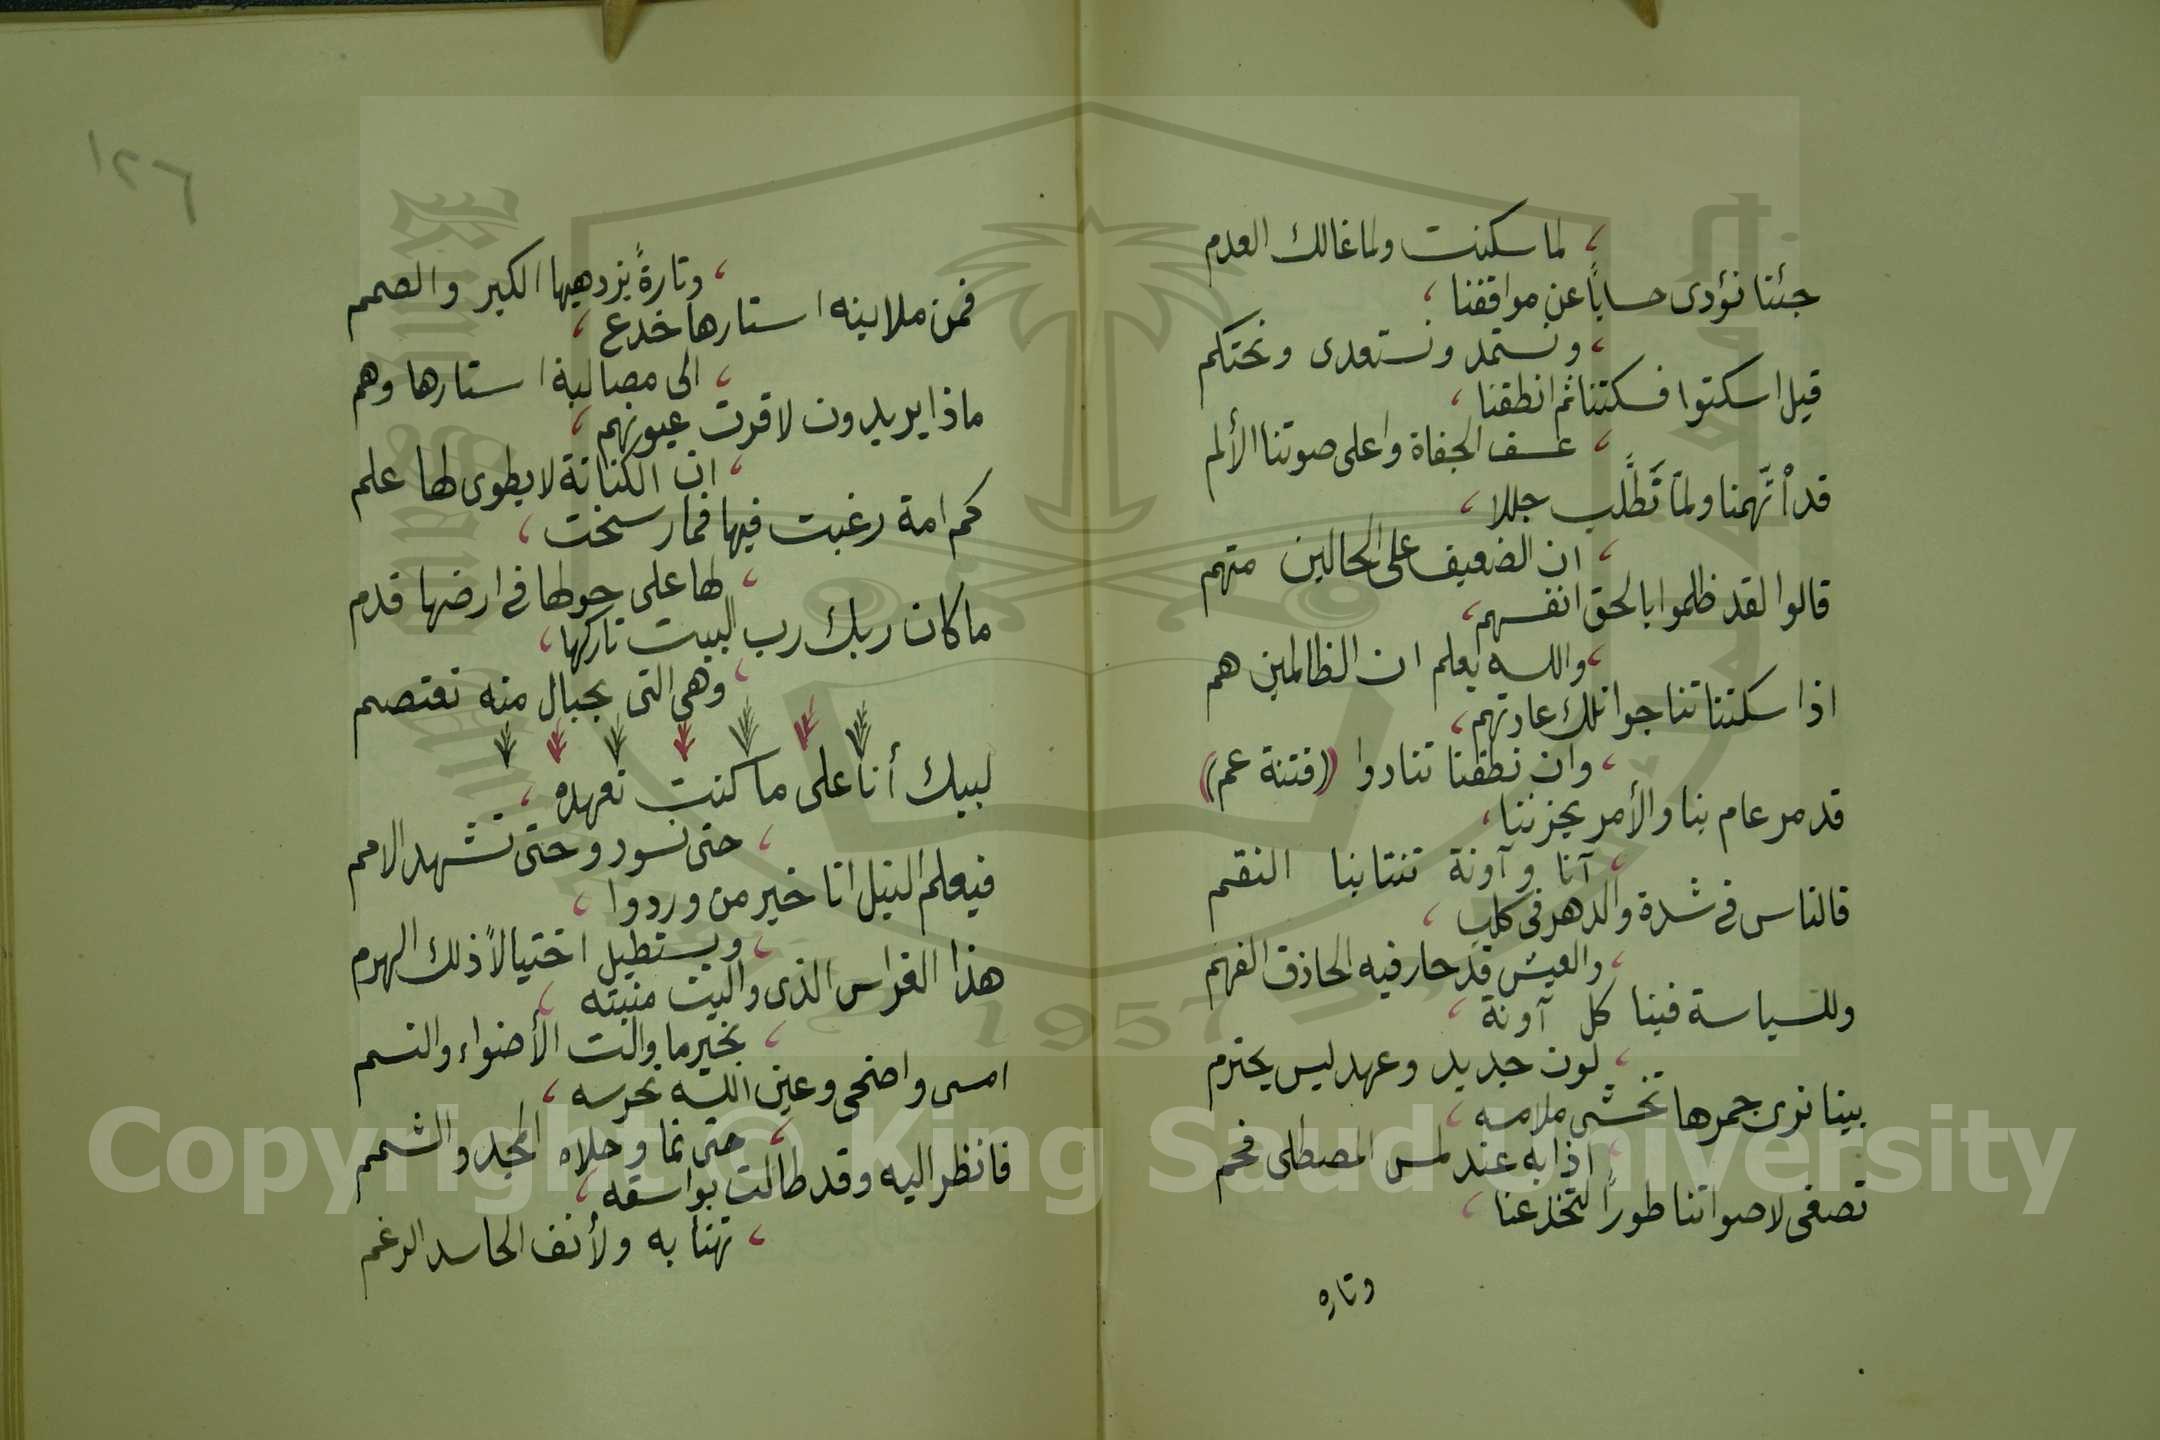 لما سكنت ولما غالك العدم
جئنا نؤدى حسابًا عن مواقفنا
ونستمد ونستعدى ونحتكم
قيل اسكتوا فسكتنا ثم انطقنا
عسف الجفاة واعلى صوتنا الألم
قد اتّهمنا ولمّا نطّلب جللا
ان الضعيف على الحالين متهم
قالوا لقد ظلموا بالحق انفسهم
والله يعلم ان الظالمين هم
اذا سكتنا تناجوا تلك عادتهم
وان نطقنا تنادوا ((فتنة عمم))
قد مر عام بنا والأمر يحزننا
آنا وآونة تنتابنا النقم
فالناس فى شدة والدهر فى كلب
والعيش قد حار فيه الحاذق الفهم
وللسياسة فينا كل آونة
لون جديد وعهد ليس يحترم
بينا نرى جمرها تخشى ملامسه
اذا به عند لمس المصطلى فحم
تصغى لاصواتنا طورًا لتخدعنا
وتاره
١٢٦
وتارةً يزدهيها الكبر والصمم
فمن ملاينه استارها خدع
الى مصالبة استارها وهم
ماذا يريدون لا قرت عيونهم
ان الكنانة لا يطوى لها علم
كم امة رغبت فيها فما رسخت
لها على حولها فى ارضها قدم
ما كان ربك رب البيت تاركها
وهى التى بحبال منه تعتصم
لبيك أنا على ما كنت تعهده
حتى نسود وحتى تشهد الامم
فيعلم النيل انا خير من وردوا
ويستطيل اختيالاً ذلك الهرم
هذا الغراس الذى واليت منبته
بخير ما والت الأضواء والنسم
امسى واضحى وعين الله تحرسه
حتى نما وحلاه المجد والشمم
فانظر اليه وقد طالت بواسقه
تهنا به ولأنف الحاسد الرغم
1957
Copyright © King Saud University